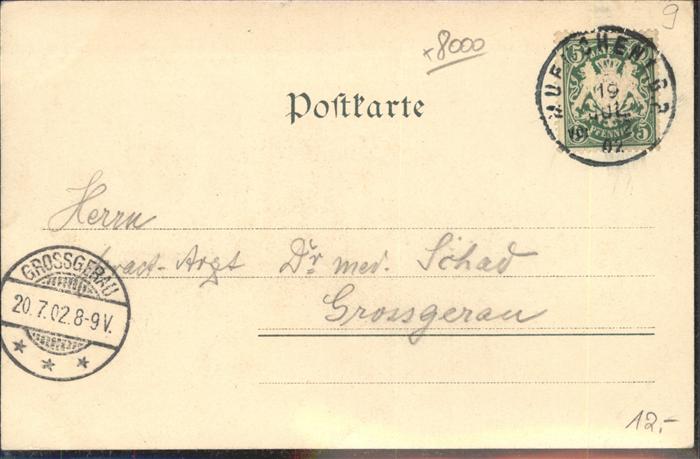 9
x8000
MÜNCHEN I. B.P.
19
JUL
02
5
PFENNIG
5
Postkarte
Herrn
pract. Arzt Dr. med. Schad
Grossgerau
GROSSGERAU
20.7.02.8-9V.
* * *
12.-